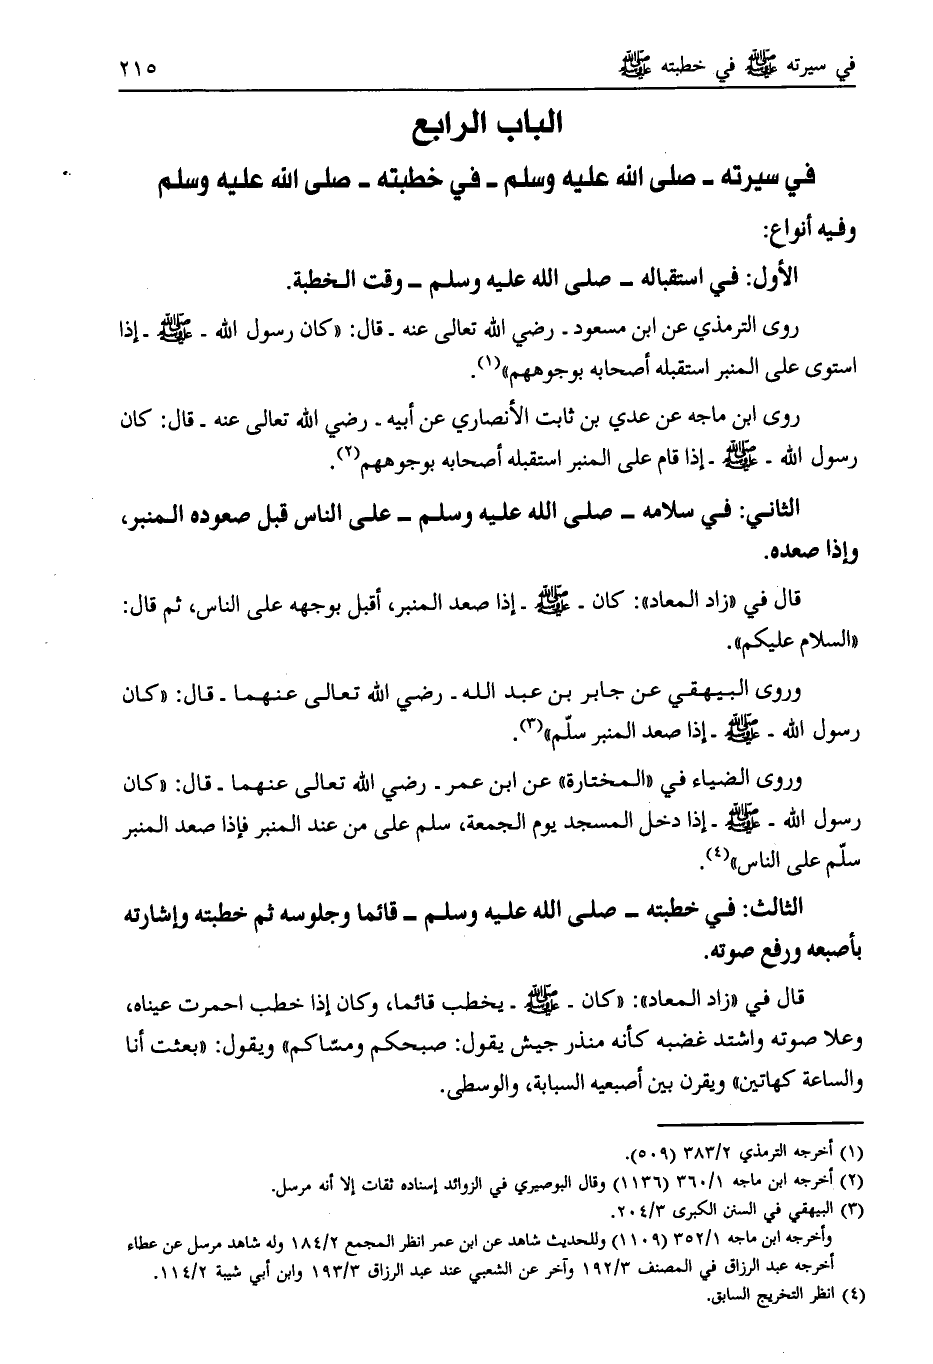 في سيرته ﷺ في خطبته ﷺ ٢١٥
الباب الرابع
في سيرته ـ صلى الله عليه وسلم ـ في خطبته ـ صلى الله عليه وسلم
وفيه أنواع:
الأول: في استقباله ـ صلى الله عليه وسلم ـ وقت الخطبة.
روى الترمذي عن ابن مسعود ـ رضي الله تعالى عنه ـ قال: «كان رسول الله ـ ﷺ ـ إذا
استوى على المنبر استقبله أصحابه بوجوههم»(١).
روى ابن ماجه عن عدي بن ثابت الأنصاري عن أبيه ـ رضي الله تعالى عنه ـ قال: كان
رسول الله ـ ﷺ ـ إذا قام على المنبر استقبله أصحابه بوجوههم(٢).
الثاني: في سلامه ـ صلى الله عليه وسلم ـ على الناس قبل صعوده المنبر،
وإذا صعده.
قال في «زاد المعاد»: كان ـ ﷺ ـ إذا صعد المنبر، أقبل بوجهه على الناس، ثم قال:
«السلام عليكم».
وروى البيهقي عن جابر بن عبد الله ـ رضي الله تعالى عنهما ـ قال: «كان
رسول الله ـ ﷺ ـ إذا صعد المنبر سلّم»(٣).
وروى الضياء في «المختارة» عن ابن عمر ـ رضي الله تعالى عنهما ـ قال: «كان
رسول الله ـ ﷺ ـ إذا دخل المسجد يوم الجمعة، سلم على من عند المنبر فإذا صعد المنبر
سلّم على الناس»(٤).
الثالث: في خطبته ـ صلى الله عليه وسلم ـ قائما وجلوسه ثم خطبته وإشارته
بأصبعه ورفع صوته.
قال في «زاد المعاد»: «كان ـ ﷺ ـ يخطب قائما، وكان إذا خطب احمرت عيناه،
وعلا صوته واشتد غضبه كأنه منذر جيش يقول: صبحكم ومسّاكم» ويقول: «بعثت أنا
والساعة كهاتين» ويقرن بين أصبعيه السبابة، والوسطى.
(١) أخرجه الترمذي ٣٨٣/٢ (٥٠٩).
(٢) أخرجه ابن ماجه ٣٦٠/١ (١١٣٦) وقال البوصيري في الزوائد إسناده ثقات إلا أنه مرسل.
(٣) البيهقي في السنن الكبرى ٢٠٤/٣.
وأخرجه ابن ماجه ٣٥٢/١ (١١٠٩) وللحديث شاهد عن ابن عمر انظر المجمع ١٨٤/٢ وله شاهد مرسل عن عطاء
أخرجه عبد الرزاق في المصنف ١٩٢/٣ وآخر عن الشعبي عند عبد الرزاق ١٩٣/٣ وابن أبي شيبة ١١٤/٢.
(٤) انظر التخريج السابق.